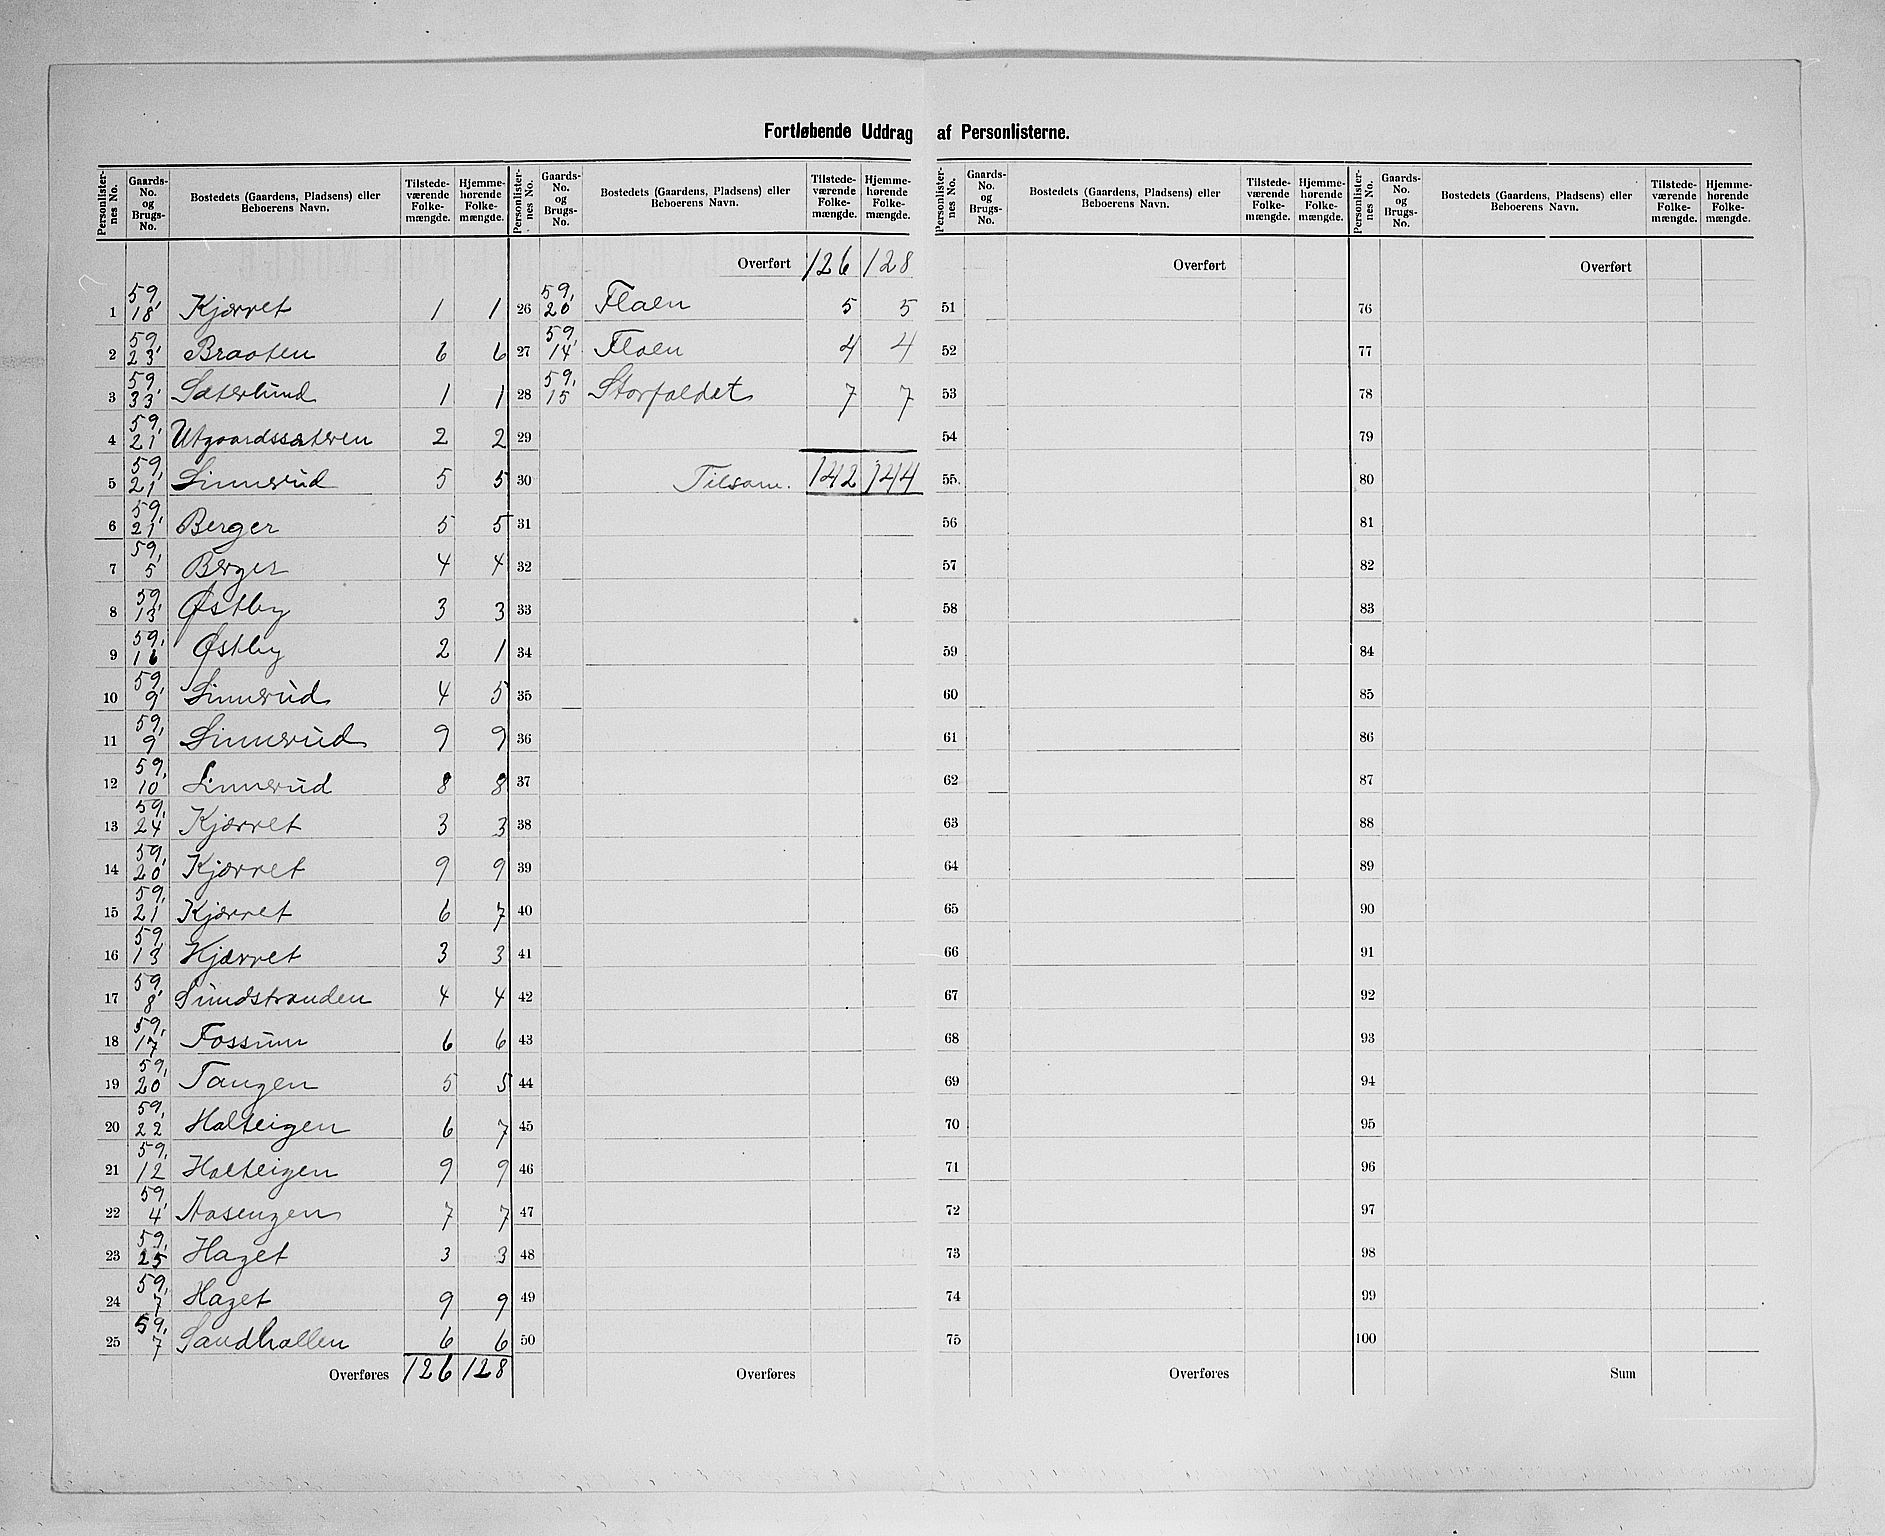 Fortløbende Uddrag af Personlisterne.
Personlister-nes No. | Gaards-No. og Brugs-No. | Bostedets (Gaardens, Pladsens) eller Beboerens Navn. | Tilstede-værende Folke-mængde. | Hjemme-hørende Folke-mængde.
1 | 59, 18 | Kjærret | 1 | 1
2 | 59, 23 | Braaten | 6 | 6
3 | 59, 33 | Sæterlund | 1 | 1
4 | 59, 21 | Utgaardssæteren | 2 | 2
5 | 59, 21 | Linnerud | 5 | 5
6 | 59, 21 | Berger | 5 | 5
7 | 59, 5 | Berger | 4 | 4
8 | 59, 13 | Østby | 3 | 3
9 | 59, 16 | Østby | 2 | 1
10 | 59, 9 | Linnerud | 4 | 5
11 | 59, 9 | Linnerud | 9 | 9
12 | 59, 10 | Linnerud | 8 | 8
13 | 59, 24 | Kjærret | 3 | 3
14 | 59, 20 | Kjærret | 9 | 9
15 | 59, 21 | Kjærret | 6 | 7
16 | 59, 13 | Kjærret | 3 | 3
17 | 59, 8 | Sundstranden | 4 | 4
18 | 59, 17 | Fossum | 6 | 6
19 | 59, 20 | Tangen | 5 | 5
20 | 59, 22 | Halteigen | 6 | 7
21 | 59, 12 | Halteigen | 9 | 9
22 | 59, 4 | Aasengen | 7 | 7
23 | 59, 25 | Haget | 3 | 3
24 | 59, 7 | Haget | 9 | 9
25 | 59, 7 | Sandhallen | 6 | 6
Overføres | 126 | 128
Personlister-nes No. | Gaards-No. og Brugs-No. | Bostedets (Gaardens, Pladsens) eller Beboerens Navn. | Tilstede-værende Folke-mængde. | Hjemme-hørende Folke-mængde.
Overført | 126 | 128
26 | 59, 20 | Floen | 5 | 5
27 | 59, 14 | Floen | 4 | 4
28 | 59, 15 | Storfaldet | 7 | 7
29
30 | Tilsam. | 142 | 144
31
32
33
34
35
36
37
38
39
40
41
42
43
44
45
46
47
48
49
50
Overføres
Personlister-nes No. | Gaards-No. og Brugs-No. | Bostedets (Gaardens, Pladsens) eller Beboerens Navn. | Tilstede-værende Folke-mængde. | Hjemme-hørende Folke-mængde.
Overført
51
52
53
54
55
56
57
58
59
60
61
62
63
64
65
66
67
68
69
70
71
72
73
74
75
Overføres
Personlister-nes No. | Gaards-No. og Brugs-No. | Bostedets (Gaardens, Pladsens) eller Beboerens Navn. | Tilstede-værende Folke-mængde. | Hjemme-hørende Folke-mængde.
Overført
76
77
78
79
80
81
82
83
84
85
86
87
88
89
90
91
92
93
94
95
96
97
98
99
100
Sum